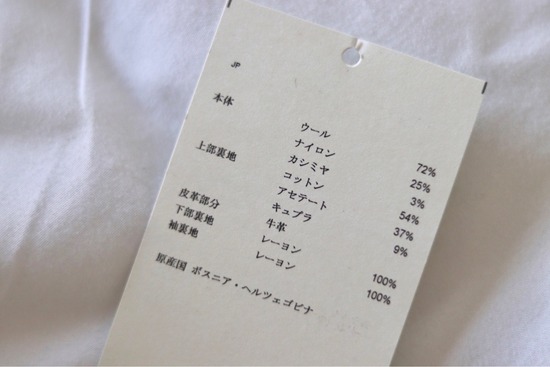 JP
本体 ウール 72%
ナイロン 25%
カシミヤ 3%
上部裏地 コットン 54%
アセテート 37%
キュプラ 9%
皮革部分 牛革
下部裏地 レーヨン 100%
袖裏地 レーヨン 100%
原産国 ボスニア・ヘルツェゴビナ